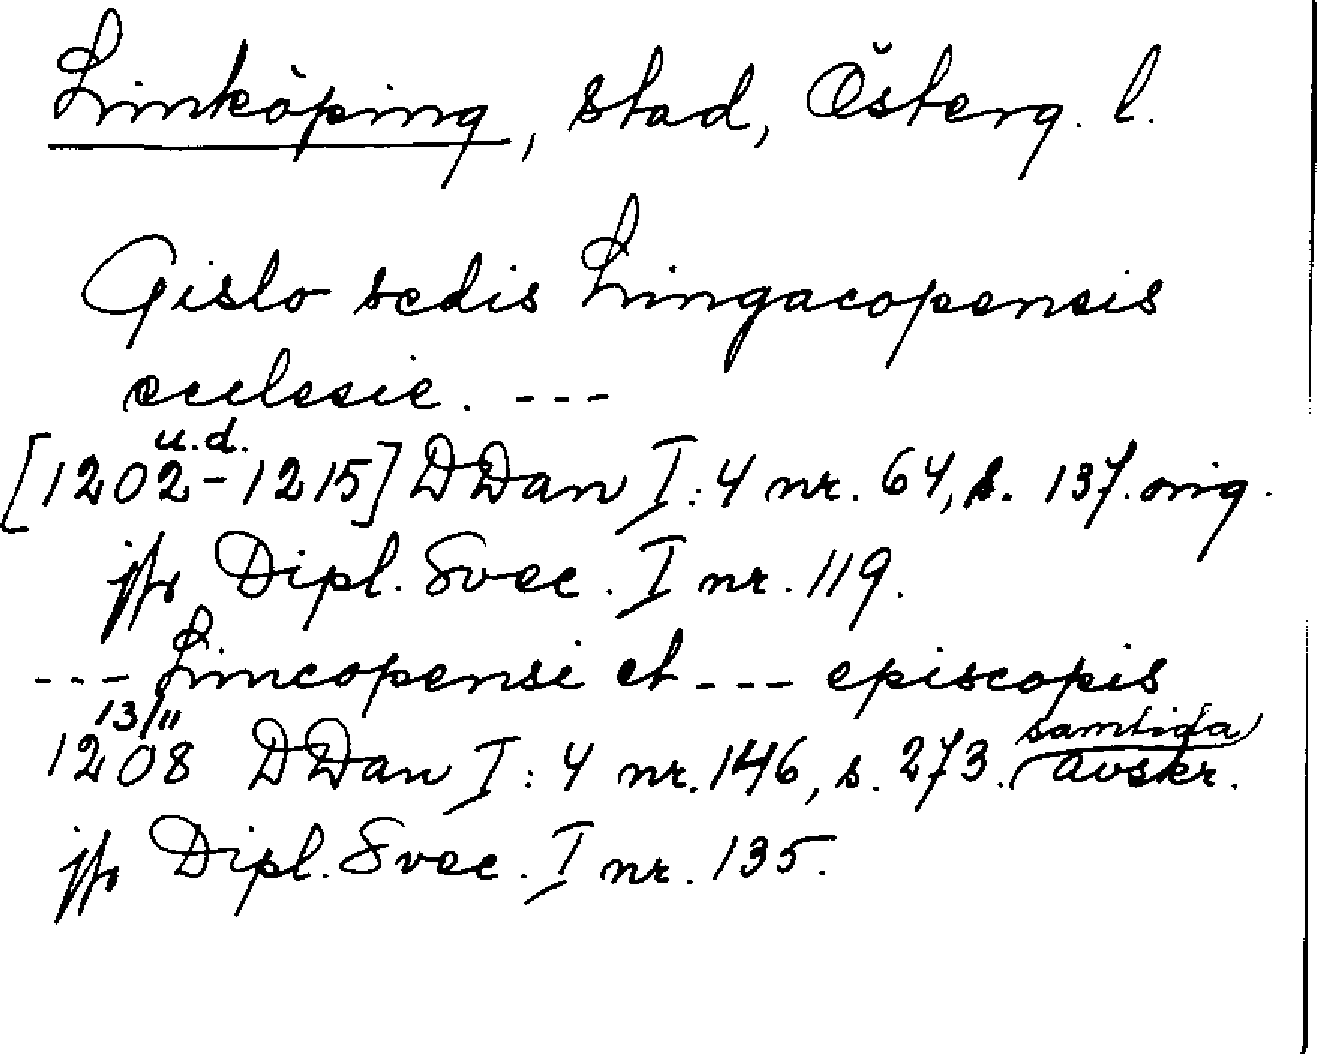 Linköping, stad, Österg. l.
Gislo sedis Lingacopensis
ecclesie. ---
u.d.
[1202-1215] DDan I:4 nr. 64, s. 137. orig.
jfr Dipl. Svec. I nr. 119.
--- Limcopensi et --- episcopis
13/11
1208 DDan I:4 nr. 146, s. 273. samtida avskr.
jfr Dipl. Svec. I nr. 135.